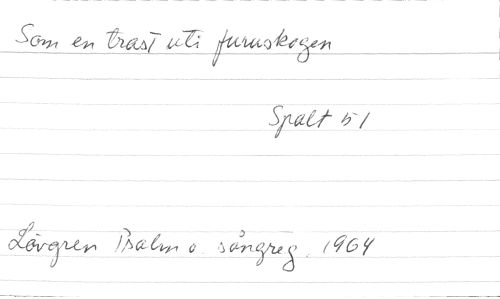 Som en trast uti furuskogen
Spalt 51
Lövgren Psalm o. sångreg. 1964